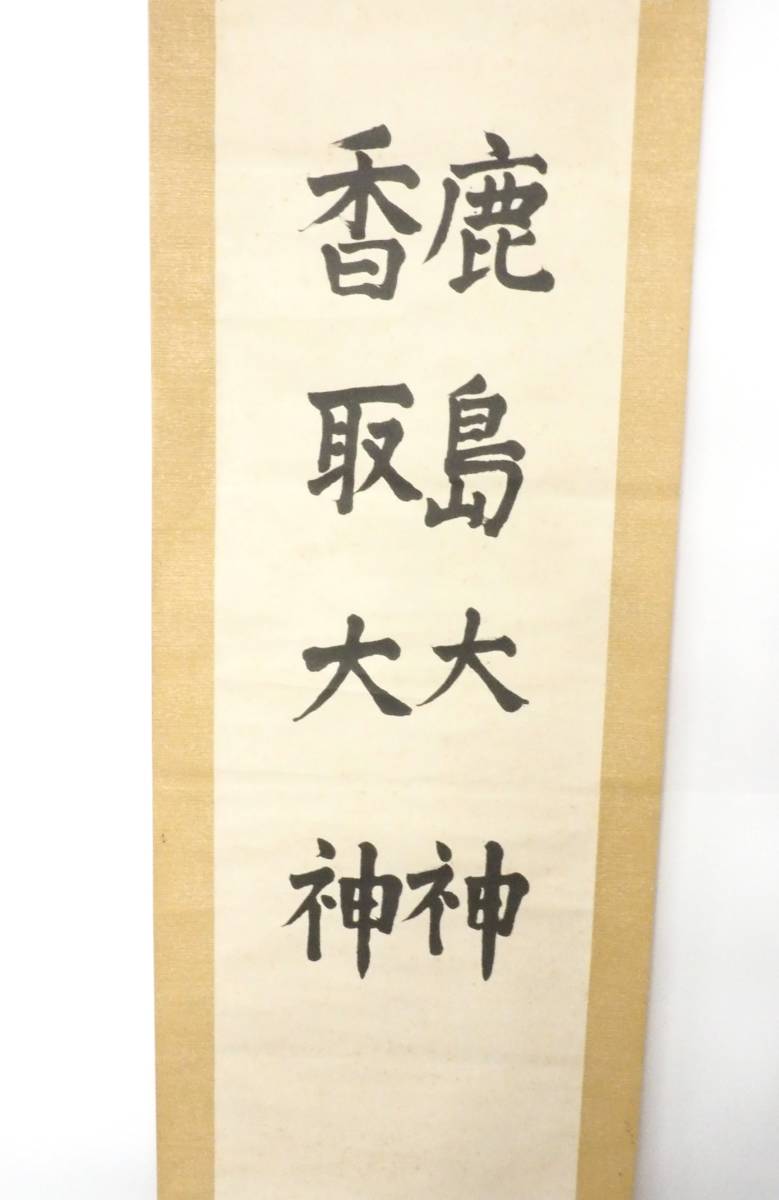 鹿島大神
香取大神